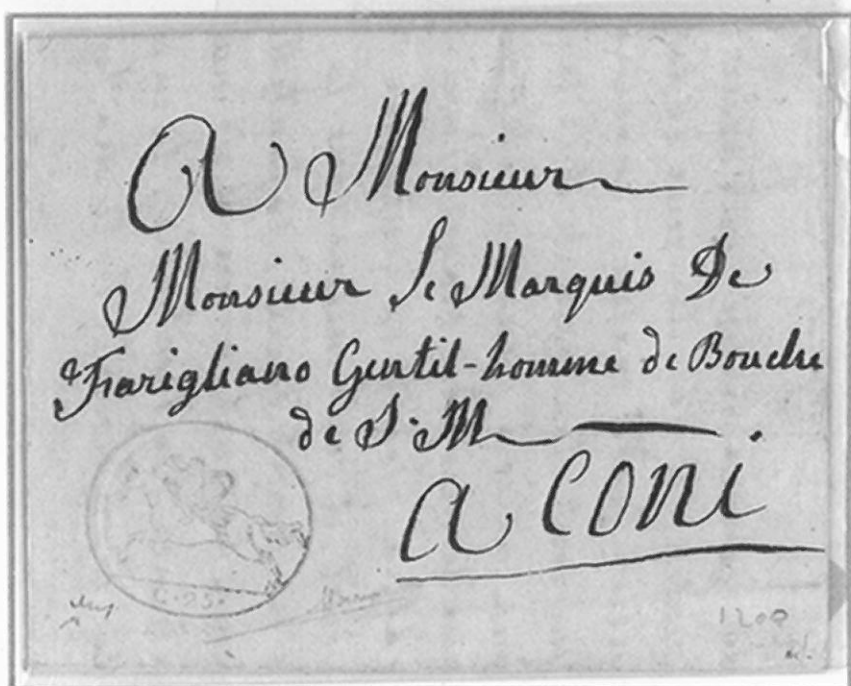 A Monsieur
Monsieur Le Marquis De
Farigliano Gentil-homme de Bouche
de S. M
A Coni
C. 25.
1200